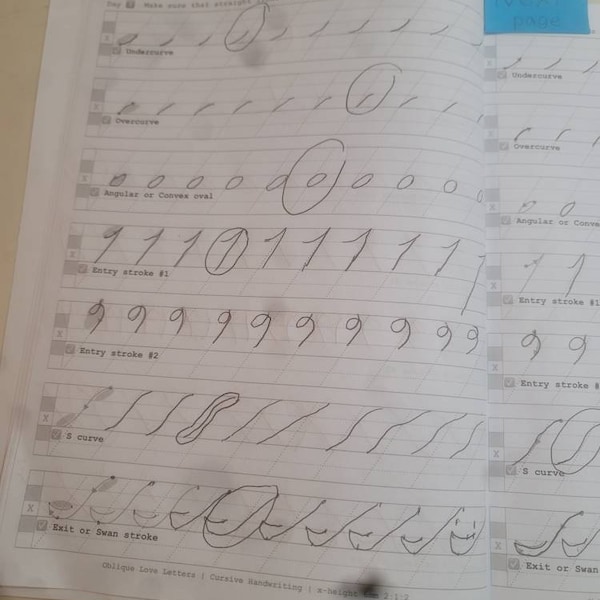 Day 7 Make sure that straight
Undercurve
Overcurve
Angular or Convex oval
Entry stroke #1
Entry stroke #2
S curve
Exit or Swan stroke
Oblique Love Letters | Cursive Handwriting | x-height
page
Undercurve
Overcurve
Angular or Conve
Entry stroke #1
Entry stroke #
S curve
Exit or Swan